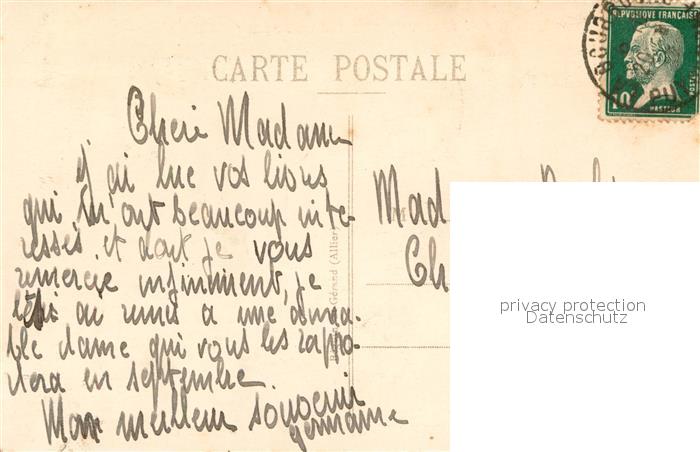 REPVBLIQUE FRANÇAISE
POSTES
10c
PASTEUR
CARTE POSTALE
Cheri Madame
J'ai lue vos livres
qui m'ont beaucoup inte-
ressés, et dont je vous
remercie infiniment, je
les ai remis a une aima-
ble dame qui vous les rappo-
tera en septembre.
Mon meilleur souvenir
germaine
Mad
Ch
Gérand (Allier)
privacy protection
Datenschutz